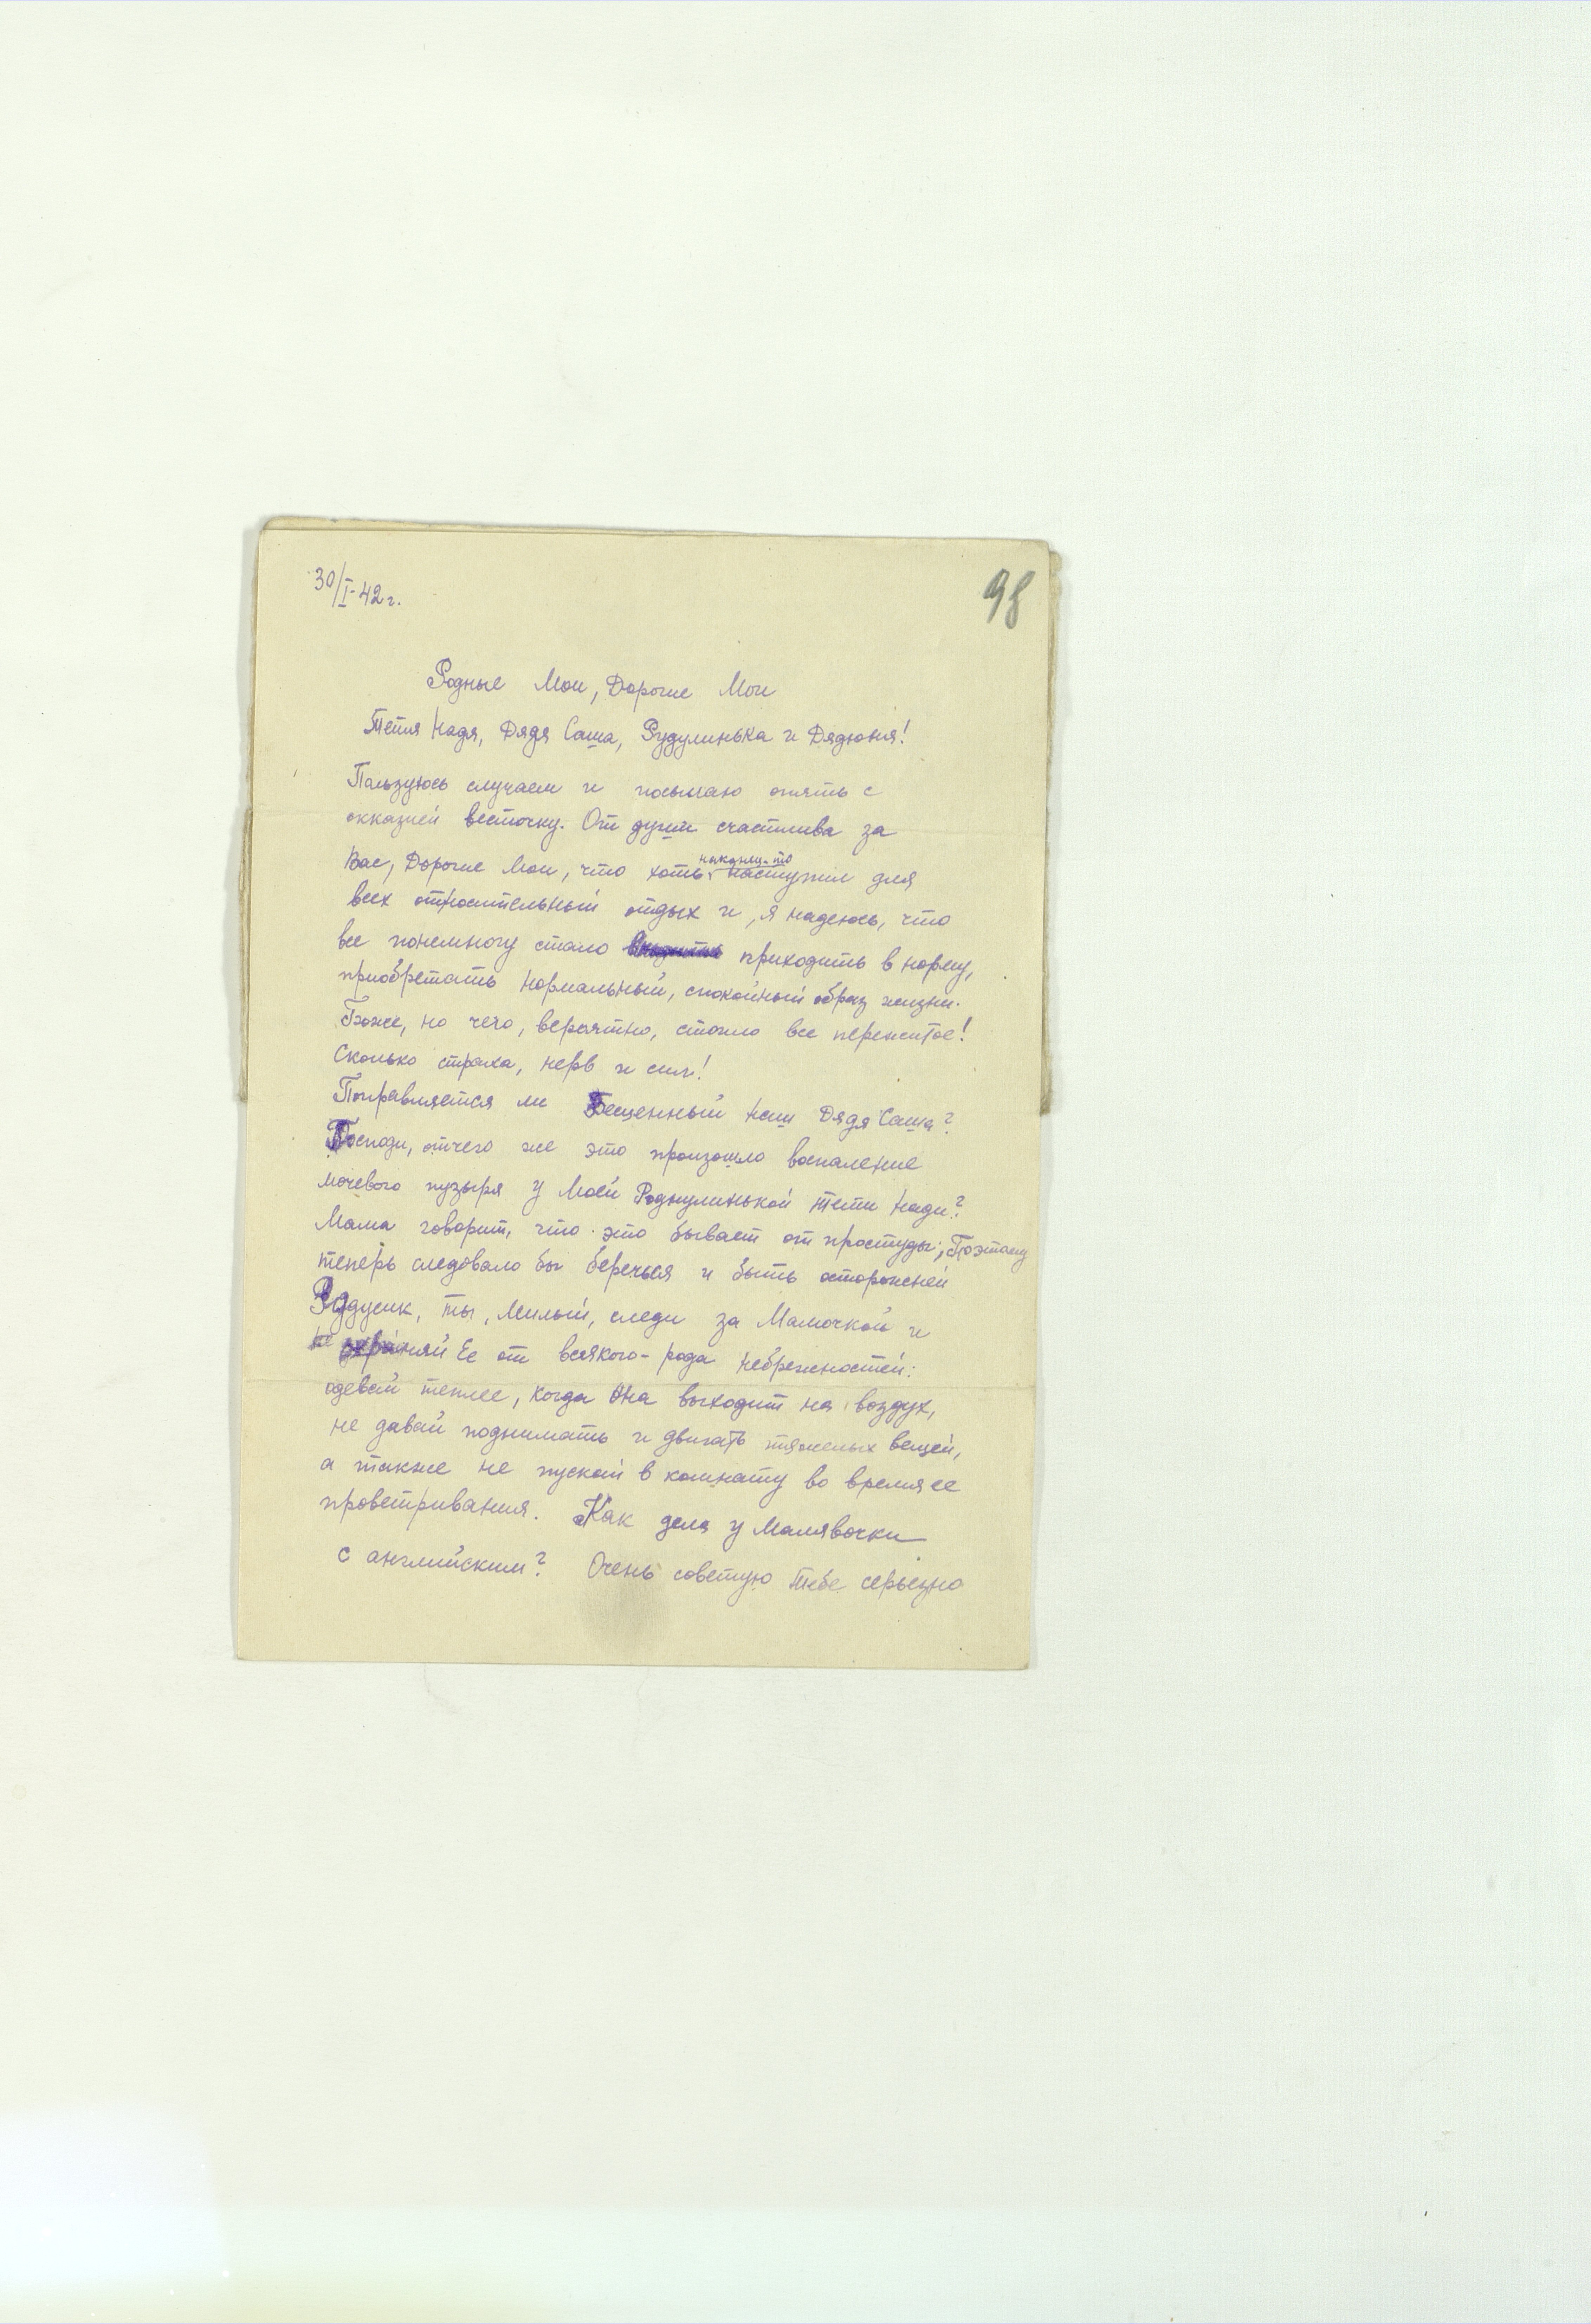 30/I-42 г.
98
Родные Мои, Дорогие Мои
Тетя Надя, Дядя Саша, Рудулинька и Дядюня!
Пользуюсь случаем и посылаю опять с
оказией весточку. От души счастлива за
Вас, Дорогие Мои, что хоть наконец-то наступил для
всех относительный отдых и, я надеюсь, что
все понемногу стало приходить в норму,
приобретать нормальный, спокойный образ жизни.
Боже, но чего, вероятно, стоило все пережитое!
Сколько страха, нерв и сил!
Поправляется ли Бесценный наш Дядя Саша?
Господи, отчего же это произошло воспаление
мочевого пузыря у Моей Роднулинькой Тети Нади?
Мама говорит, что это бывает от простуды; Поэтому
теперь следовало бы беречься и быть осторожней
Рудусик, ты, Милый, следи за Мамочкой и
охраняй Ее от всякого-рода небрежностей:
одевай теплее, когда Она выходит на воздух,
не давай поднимать и двигать тяжелых вещей,
а также не пускай в комнату во время ее
проветривания. Как дела у Малявочки
с английским? Очень советую Тебе серьезно